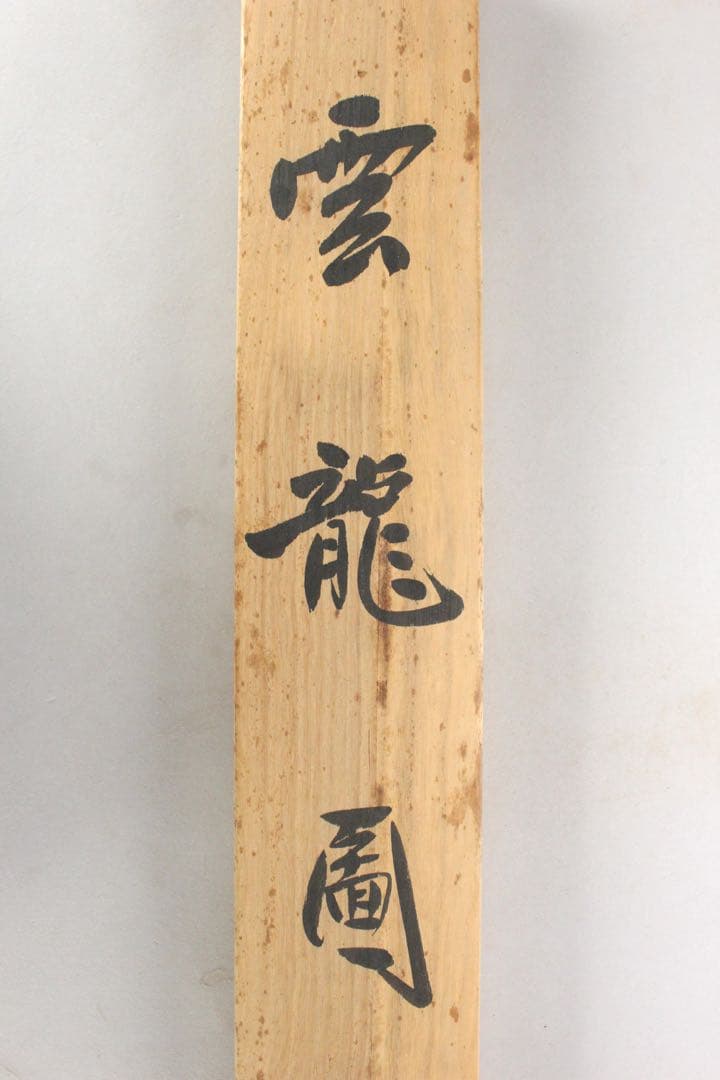 雲龍圖